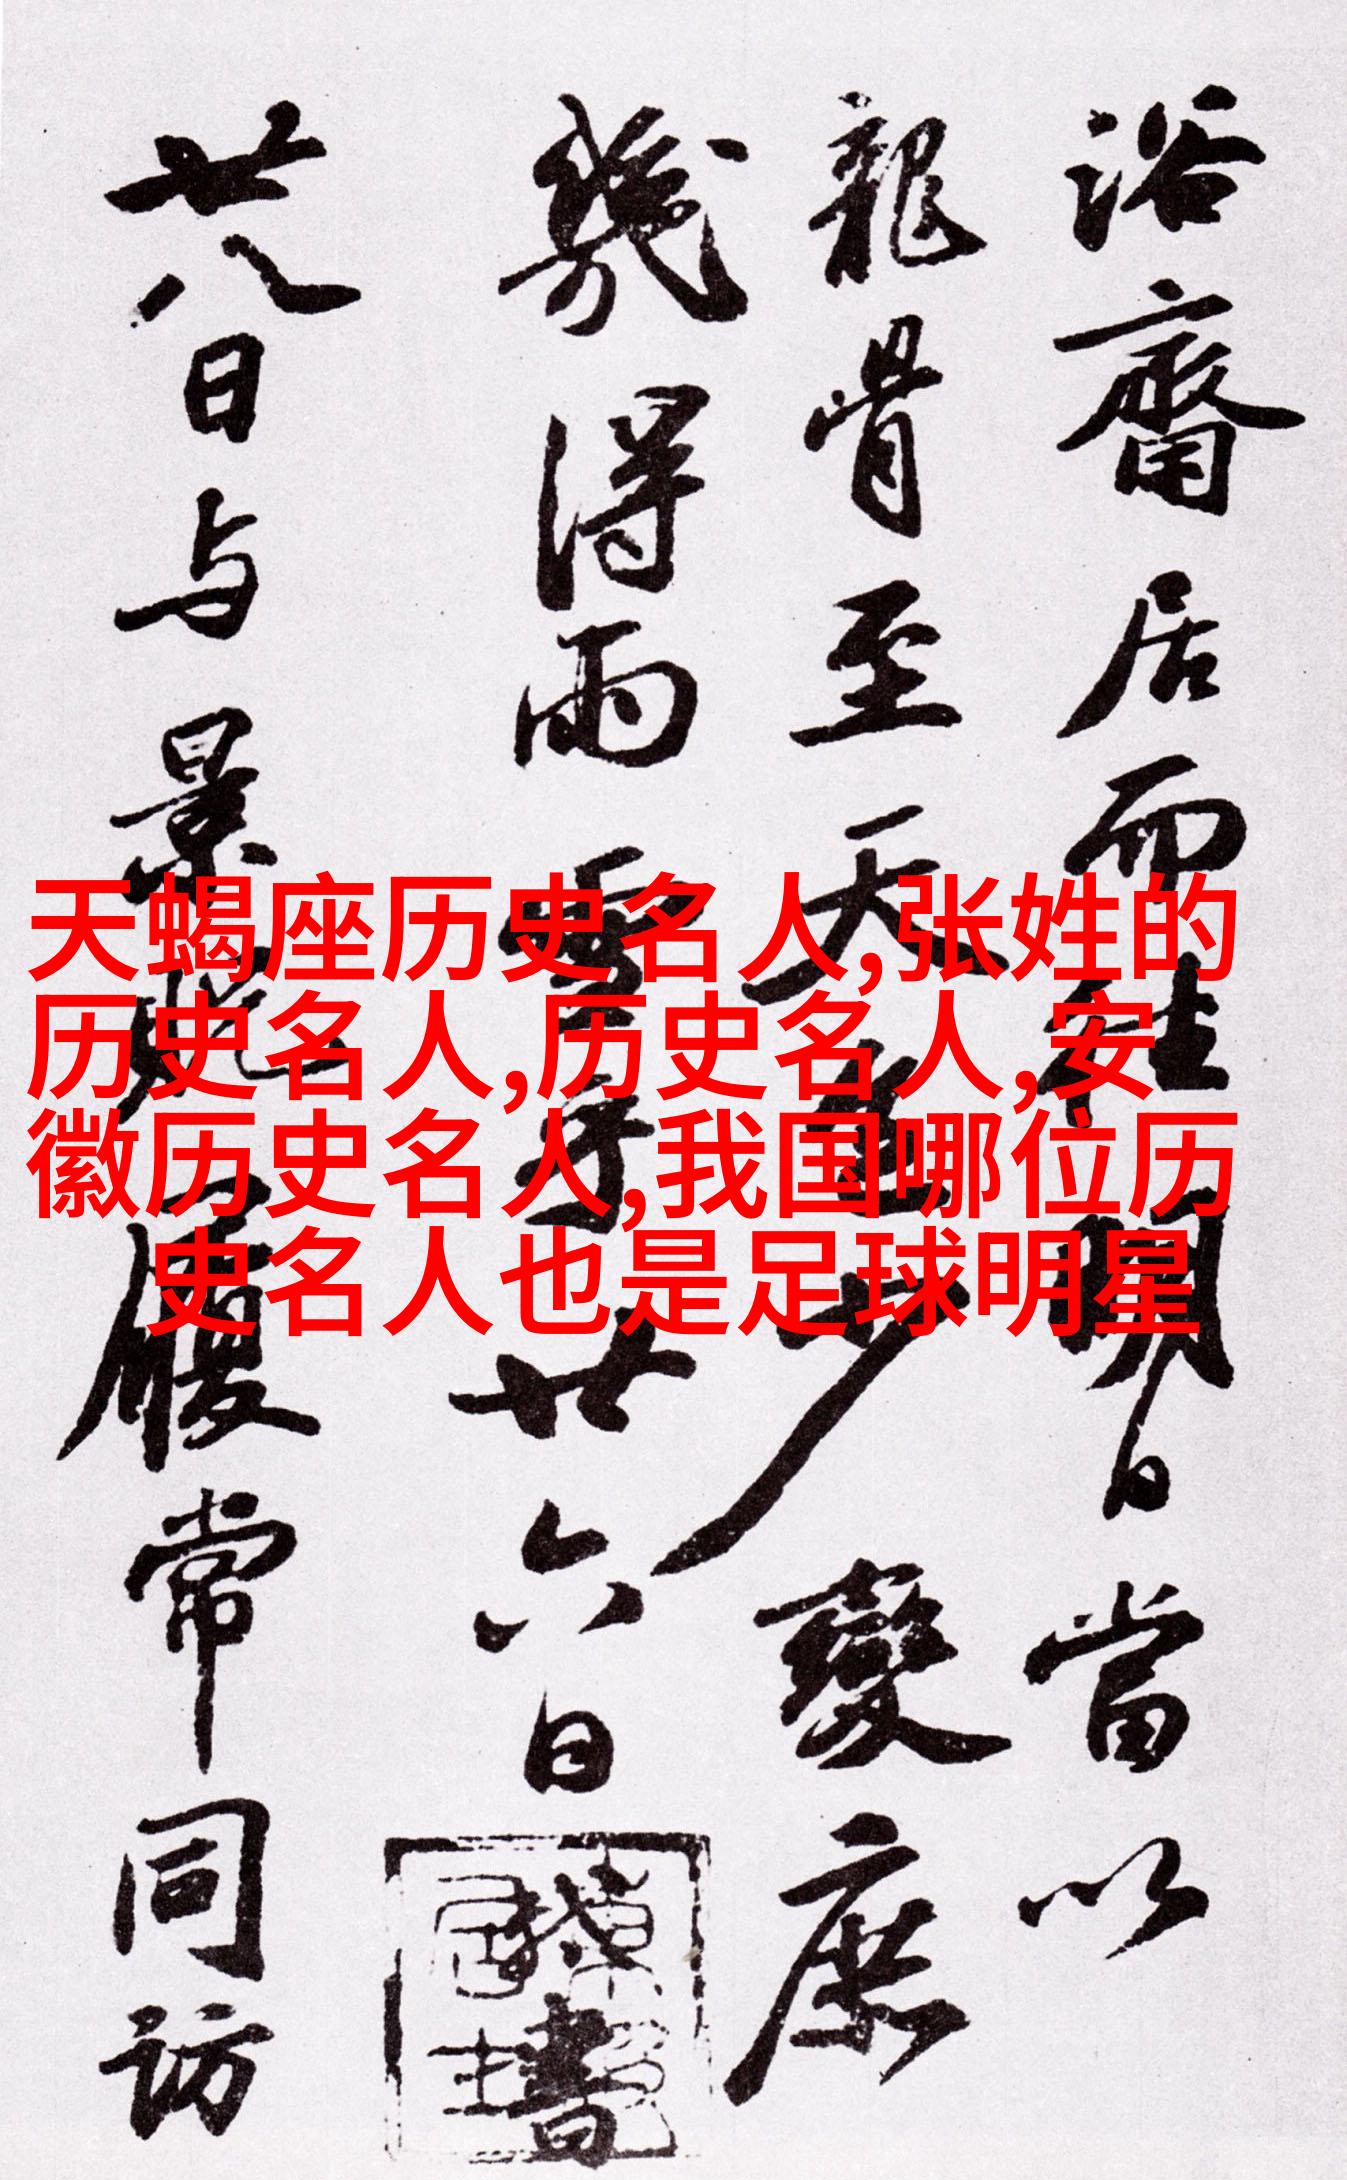 浴齋居而明日當以
龍骨至天少變庶
幾得雨雪廿六日
書
廿八日与景貺履常同訪
天蝎座历史名人,张姓的
历史名人,历史名人,安
徽历史名人,我国哪位历
史名人也是足球明星